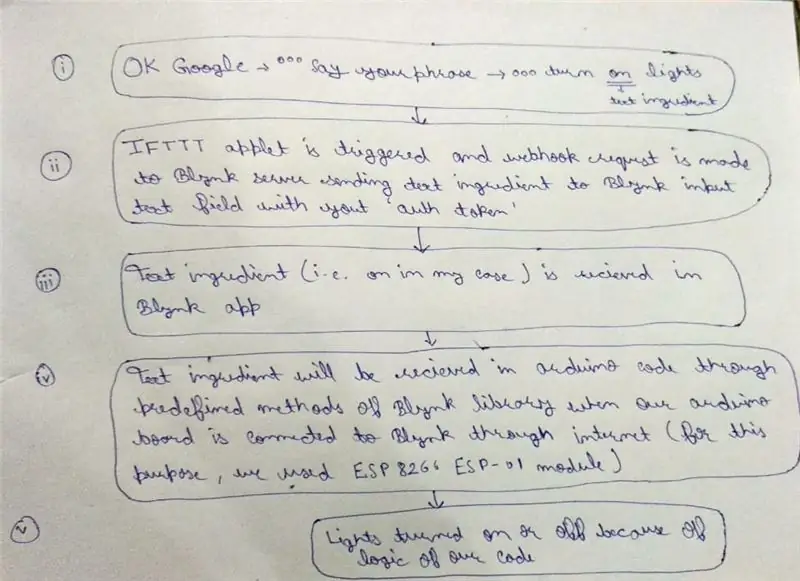 i
OK Google → ooo Say your phrase → ooo turn on lights
↓
text ingredient
↓
ii
IFTTT applet is triggered and webhook request is made
to Blynk server sending text ingredient to Blynk input
text field with yout 'auth token'
↓
iii
Text ingredient (i.e. on in my case) is recieved in
Blynk app
↓
iv
Text ingredient will be recieved in arduino code through
predefined methods of Blynk library when our arduino
board is connected to Blynk through internet (for this
purpose, we used ESP8266 ESP-01 module)
↓
v
Lights turned on or off because of
logic of our code